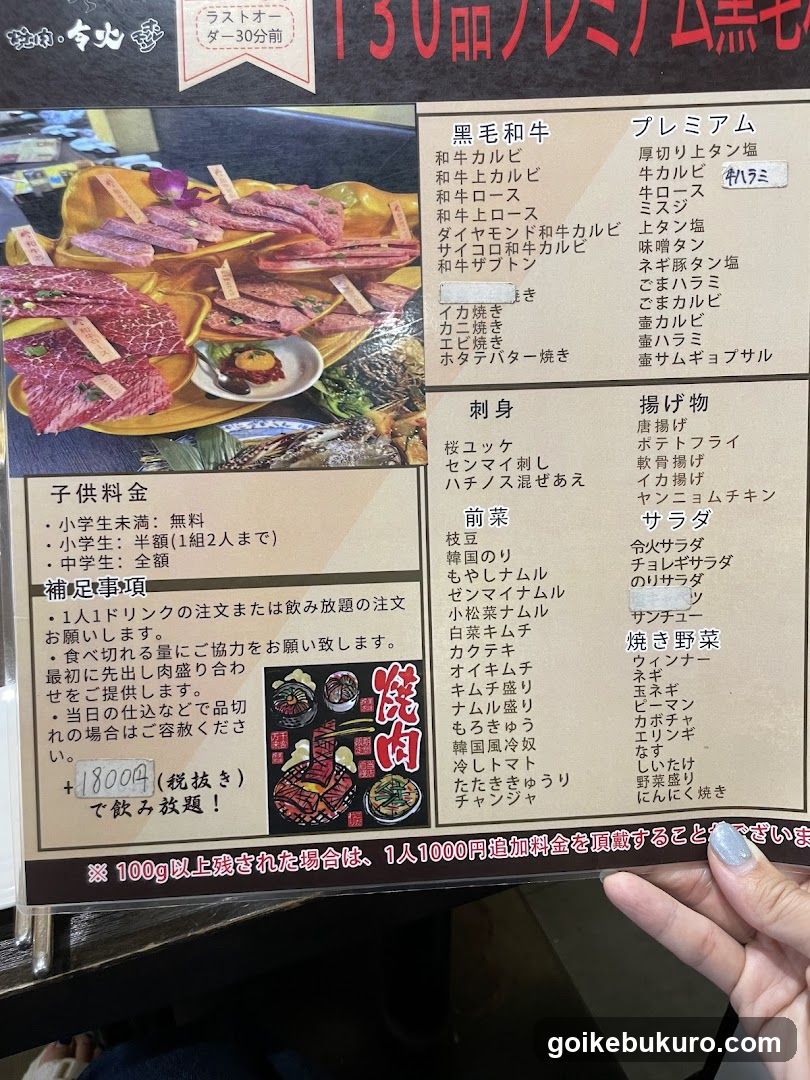 焼肉・令火
ラストオー
ダー30分前
130品プレミアム黒毛
黒毛和牛
和牛カルビ
和牛上カルビ
和牛ロース
和牛上ロース
ダイヤモンド和牛カルビ
サイコロ和牛カルビ
和牛ザブトン
焼き
イカ焼き
カニ焼き
エビ焼き
ホタテバター焼き
プレミアム
厚切り上タン塩
牛カルビ 牛ハラミ
牛ロース
ミスジ
上タン塩
味噌タン
ネギ豚タン塩
ごまハラミ
ごまカルビ
壷カルビ
壷ハラミ
壷サムギョプサル
刺身
桜ユッケ
センマイ刺し
ハチノス混ぜあえ
揚げ物
唐揚げ
ポテトフライ
軟骨揚げ
イカ揚げ
ヤンニョムチキン
前菜
枝豆
韓国のり
もやしナムル
ゼンマイナムル
小松菜ナムル
白菜キムチ
カクテキ
オイキムチ
キムチ盛り
ナムル盛り
もろきゅう
韓国風冷奴
冷しトマト
たたききゅうり
チャンジャ
サラダ
令火サラダ
チョレギサラダ
のりサラダ
ツ
サンチュー
焼き野菜
ウィンナー
ネギ
玉ネギ
ピーマン
カボチャ
エリンギ
なす
しいたけ
野菜盛り
にんにく焼き
子供料金
・小学生未満：無料
・小学生：半額(1組2人まで)
・中学生：全額
補足事項
・1人1ドリンクの注文または飲み放題の注文
お願いします。
・食べ切れる量にご協力をお願い致します。
最初に先出し肉盛り合わ
せをご提供します。
・当日の仕込などで品切
れの場合はご容赦くださ
い。
+1800円(税抜き)
で飲み放題！
焼肉
※ 100g以上残された場合は、1人1000円追加料金を頂戴することがございま
goikebukuro.com